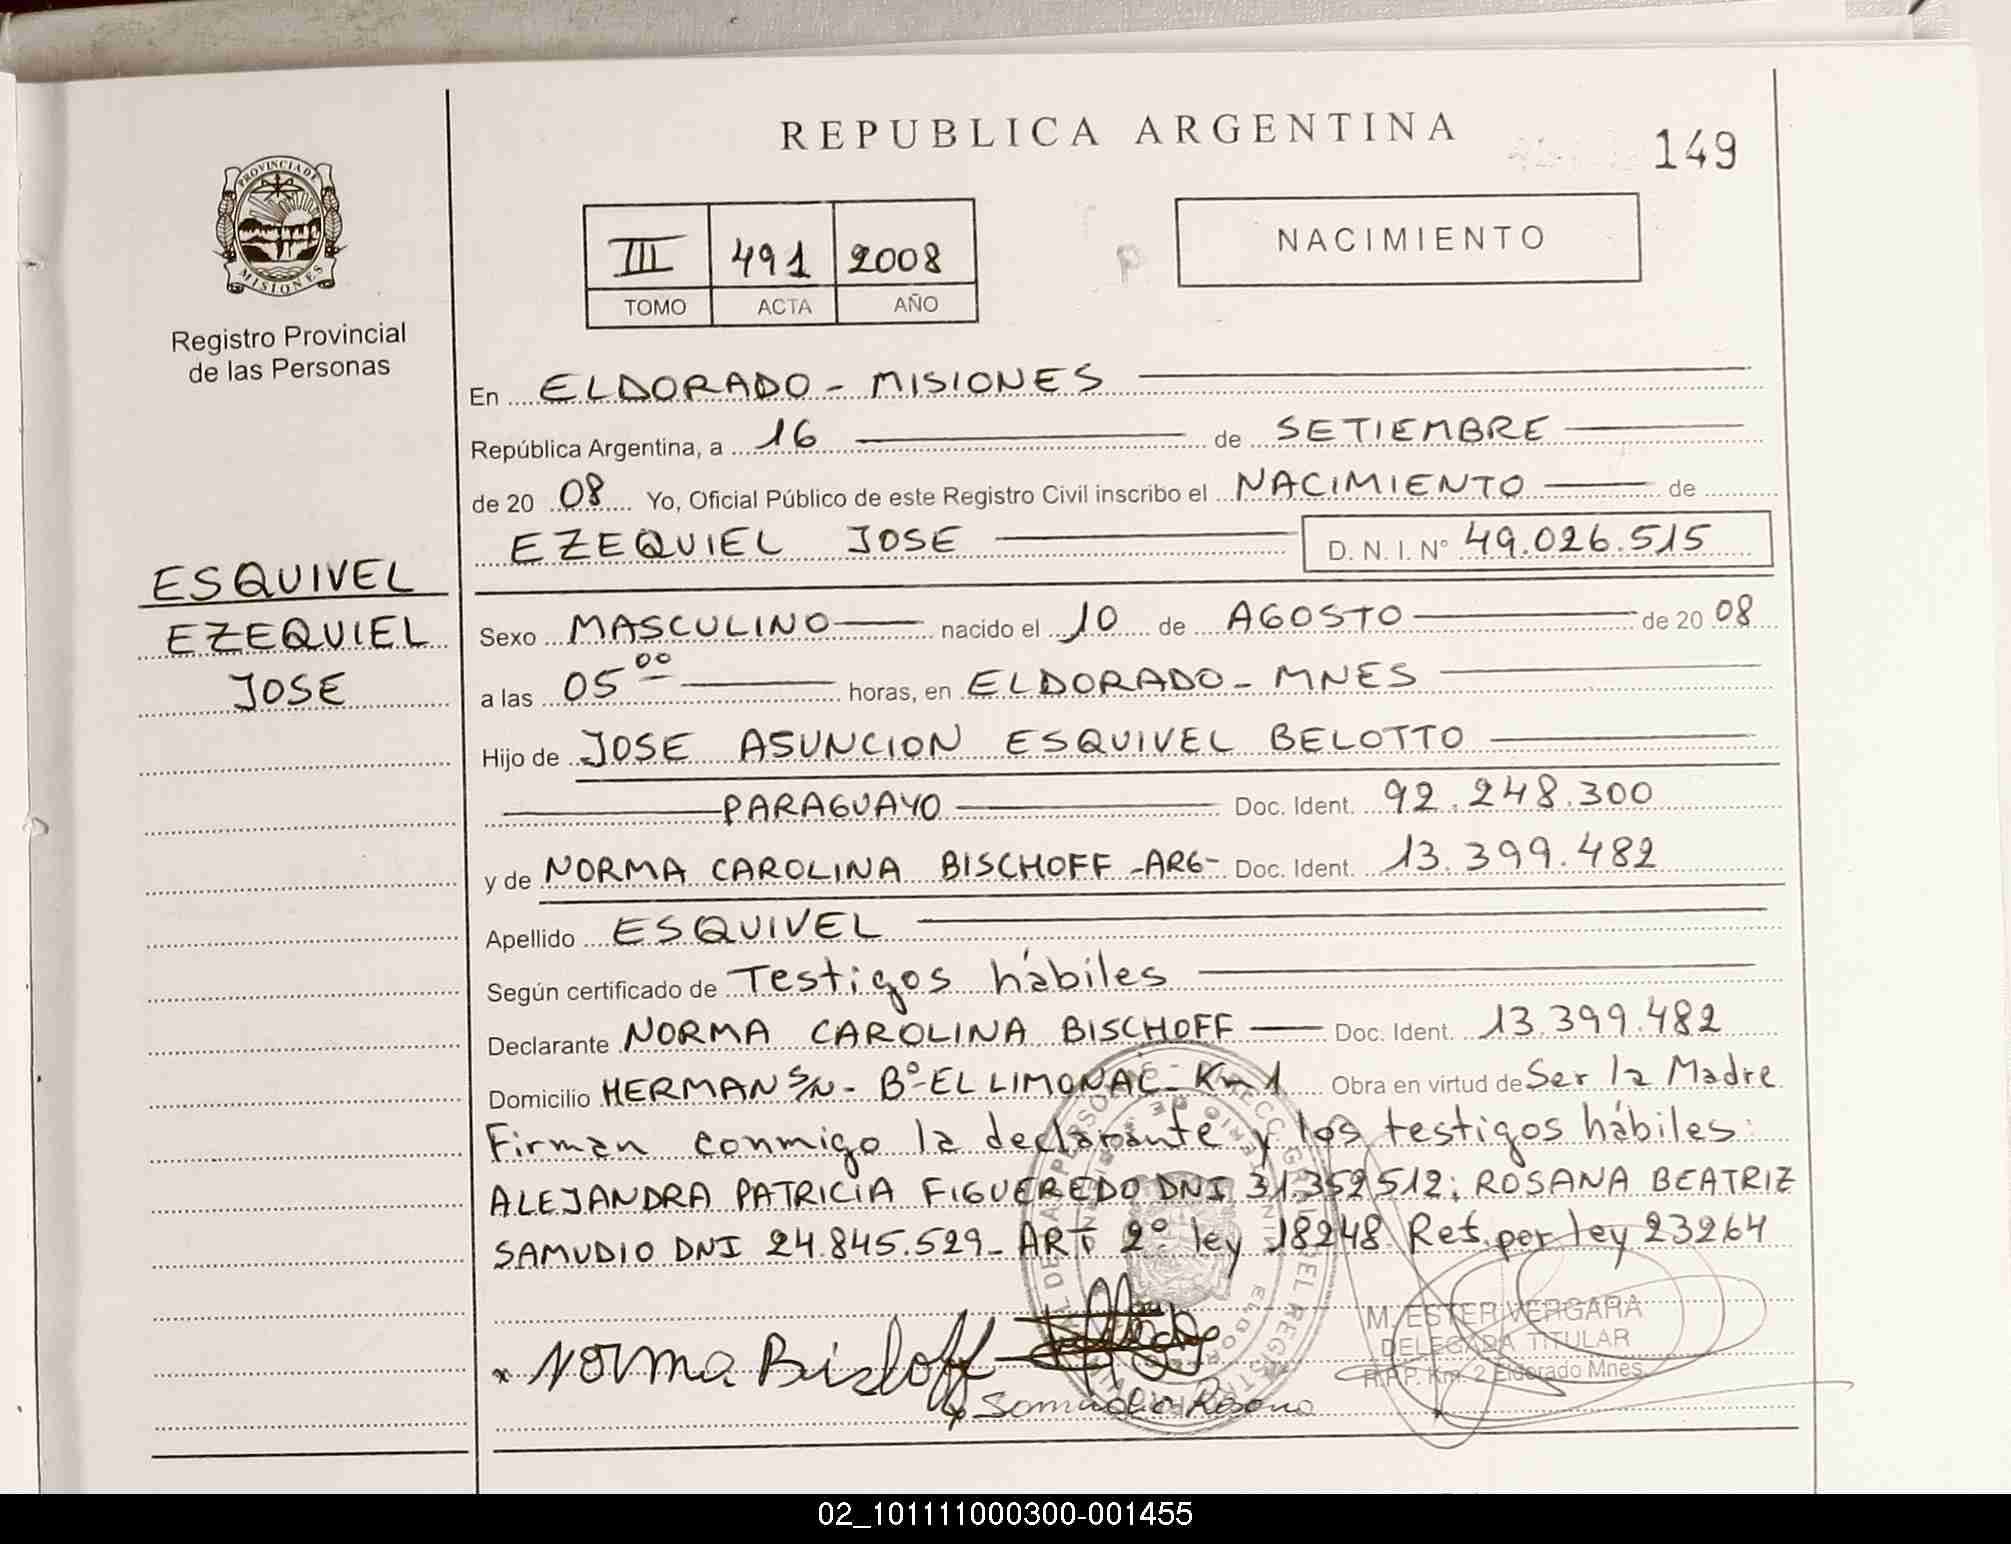 REPUBLICA ARGENTINA
149
PROVINCIA DE
MISIONES
Registro Provincial
de las Personas
III 491 2008
TOMO ACTA AÑO
NACIMIENTO
En ELDORADO - MISIONES
República Argentina, a 16 de SETIEMBRE
de 20 08 Yo, Oficial Público de este Registro Civil inscribo el NACIMIENTO de
EZEQUIEL JOSE D. N. I. N° 49.026.515
ESQUIVEL
EZEQUIEL
JOSE
Sexo MASCULINO nacido el 10 de AGOSTO de 20 08
a las 05 00 horas, en ELDORADO - MNES
Hijo de JOSE ASUNCION ESQUIVEL BELOTTO
PARAGUAYO Doc. Ident. 92.248.300
y de NORMA CAROLINA BISCHOFF -ARG- Doc. Ident. 13.399.482
Apellido ESQUIVEL
Según certificado de Testigos hábiles
Declarante NORMA CAROLINA BISCHOFF Doc. Ident. 13.399.482
Domicilio HERMAN S/N - B° EL LIMONAL - Km 1 Obra en virtud de Ser la Madre
Firman conmigo la declarante y los testigos hábiles:
ALEJANDRA PATRICIA FIGUEREDO DNI 31.352512; ROSANA BEATRIZ
SAMUDIO DNI 24.845.529- ART 2° ley 18248 Ref. por ley 23264
M. ESTER VERGARA
DELEGADA TITULAR
R.P.P. Km. 2 Eldorado Mnes.
x Norma Bisloff
x Samudio Rosana
02_101111000300-001455